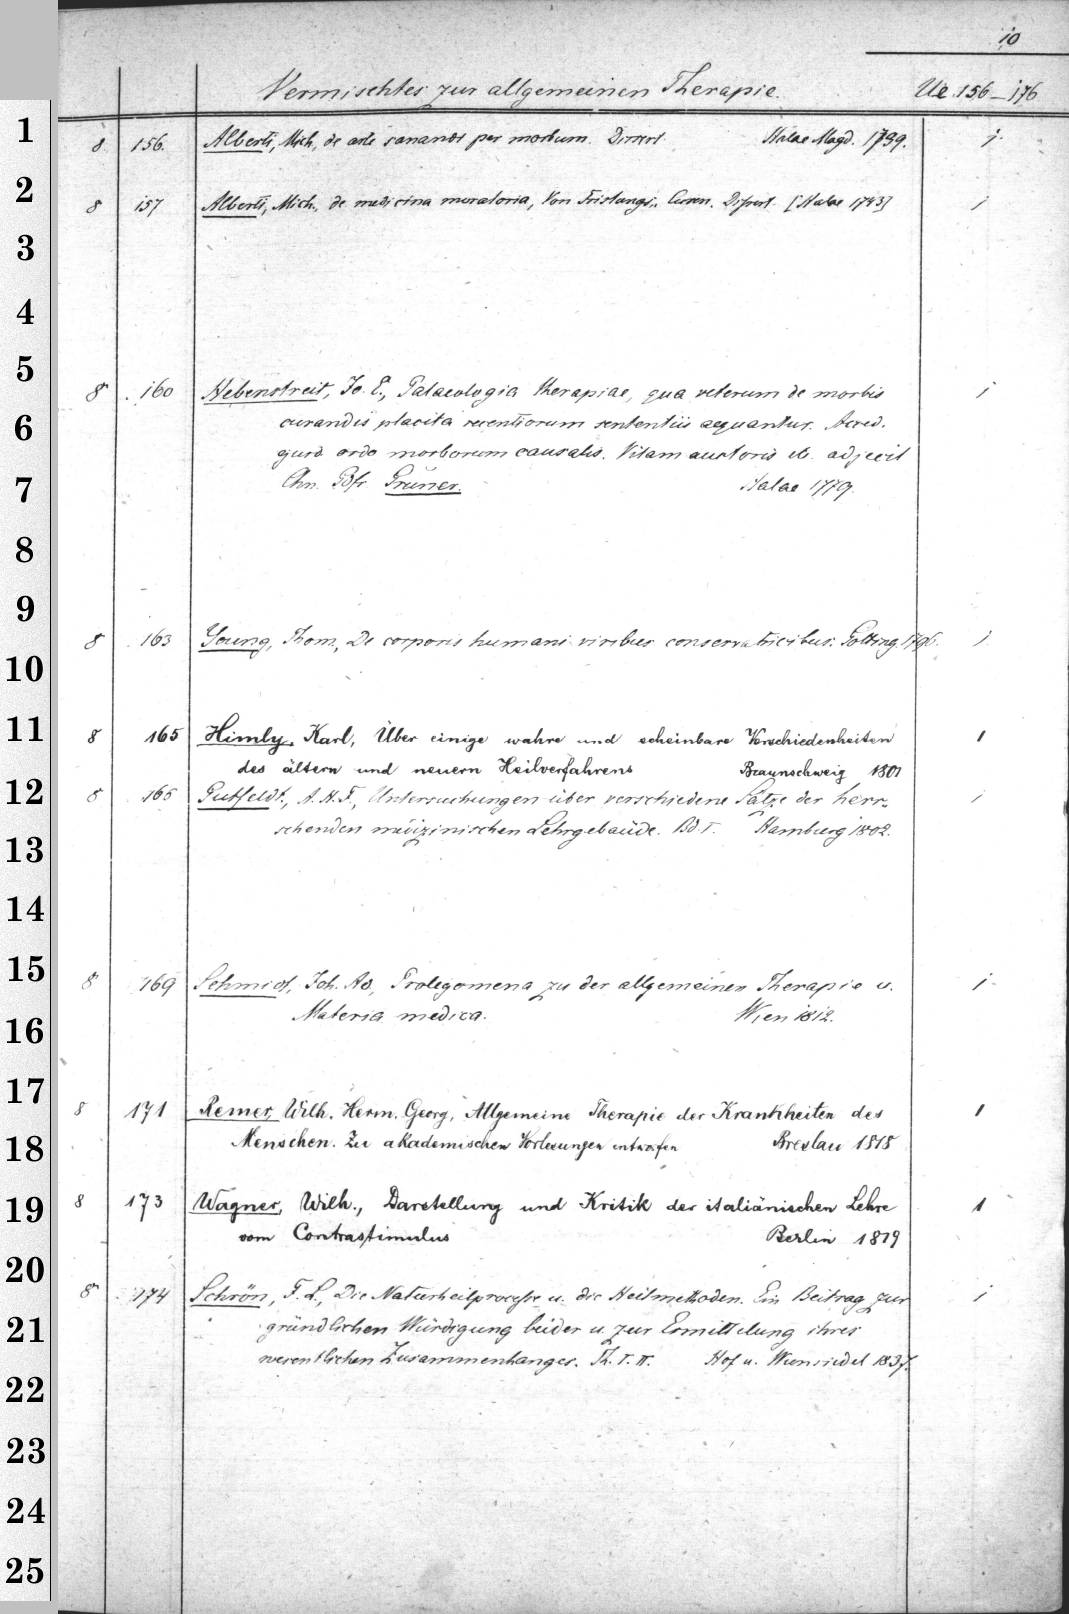 10
Vermischtes zur allgemeinen Therapie. Ue 156–176
1
8 156. Alberti, Mich., de arte sanandi per morbum. Dissert. Halae Magd. 1739. 1
2
8 157 Alberti, Mich., de medicina muratoria, Von Curen. Dissert. [Halae 1743] 1
3
4
5
8 160 Hebenstreit, Jo. E., Palaeologia therapiae, qua veterum de morbis 1
6
curandis placita recentiorum sententiis aequantur. Acced.
guid. ordo morborum causalis. Vitam auctoris etc. adjecit
7
Chn. Gfr. Gruner. Halae 1779.
8
9
8 163 Young, Thom., De corporis humani viribus conservatricibus. Götting. 1796. 1
10
11
8 165 Himly, Karl, Über einige wahre und scheinbare Verschiedenheiten 1
des ältern und neuern Heilverfahrens Braunschweig 1801
12
8 166 Gutfeldt, A. H. F., Untersuchungen über verschiedene Sätze der herr- 1
13
schenden medizinischen Lehrgebäude. Bd. I. Hamburg 1802.
14
15
8 169 Schmidt, Joh. Ad., Prolegomena zu der allgemeinen Therapie u. 1
16
Materia medica. Wien 1812.
17
8 171 Remer, Wilh. Herm. Georg, Allgemeine Therapie der Krankheiten des 1
18
Menschen. Zu akademischen Vorlesungen entworfen Breslau 1818
19
8 173 Wagner, Wilh., Darstellung und Kritik der italiänischen Lehre 1
vom Contrastimulus Berlin 1819
20
8 174 Schrön, F. L., Die Naturheilprocesse u. die Heilmethoden. Ein Beitrag zur 1
21
gründlichen Würdigung beider u. zur Ermittelung ihres
wesentlichen Zusammenhanges. Th. I. II. Hof u. Wunsiedel 1837.
22
23
24
25